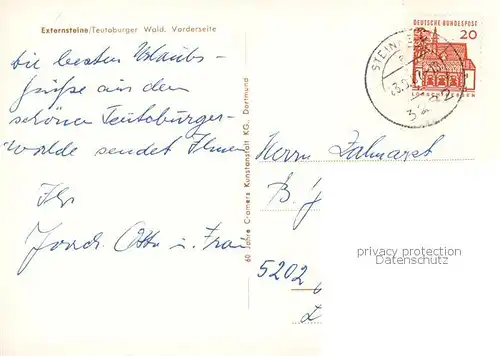 Externsteine/Teutoburger Wald. Vorderseite
Die besten Urlaubs-
grüße aus dem
schönen Teutoburger-
walde sendet Ihnen
Ihr
Otto u. Frau
60 Jahre Cramers Kunstanstalt KG, Dortmund
DEUTSCHE BUNDESPOST
20
LORSCH HESSEN
STEINHE
Herrn Zahnarzt
B.
5202
privacy protection
www.ansichtskarten-center.de